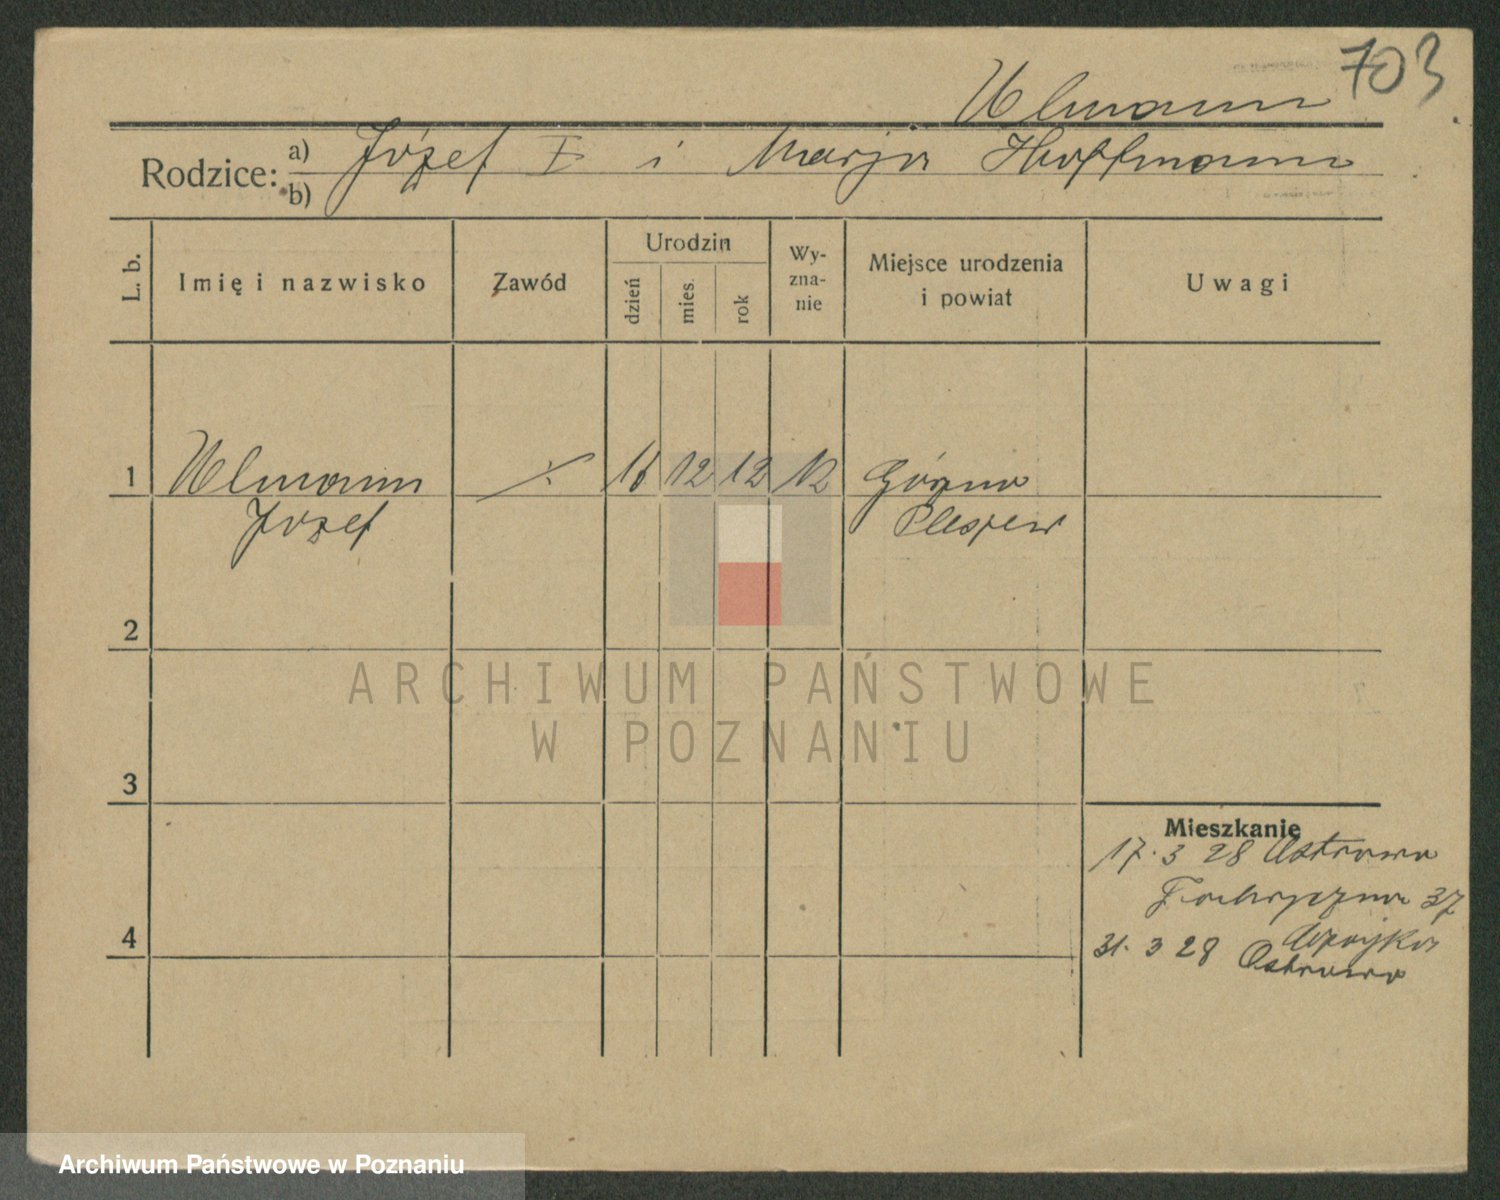 703
Ulmann
Rodzice: a) Józef I i Marja Hoffmann
b)
L. b. Imię i nazwisko Zawód Urodzin dzień mies. rok Wy-zna-nie Miejsce urodzenia i powiat Uwagi
1 Ulmann ./. 16 12 12 Górzno
Józef Pleszew
2
ARCHIWUM PAŃSTWOWE
W POZNANIU
3
Mieszkanie
17. 3 28 Ostrowo
Fabryczna 37
4
31. 3 28 Ostrowo
Archiwum Państwowe w Poznaniu